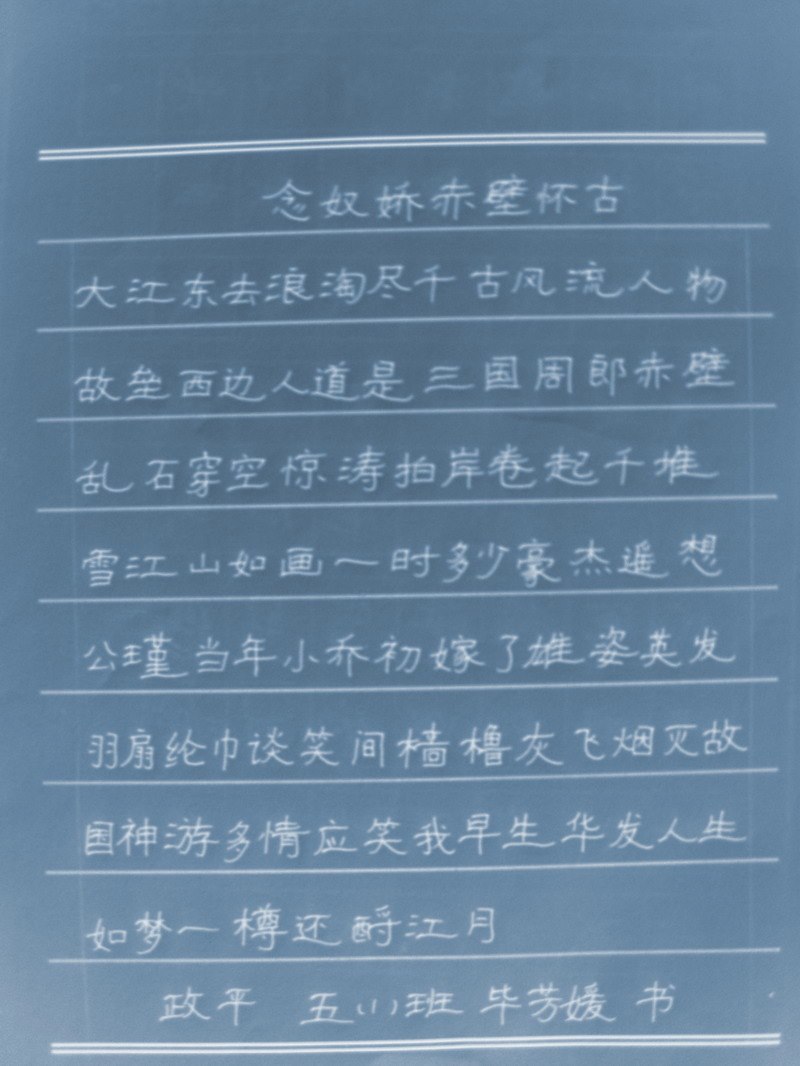 念奴娇赤壁怀古
大江东去浪淘尽千古风流人物
故垒西边人道是三国周郎赤壁
乱石穿空惊涛拍岸卷起千堆
雪江山如画一时多少豪杰遥想
公瑾当年小乔初嫁了雄姿英发
羽扇纶巾谈笑间樯橹灰飞烟灭故
国神游多情应笑我早生华发人生
如梦一樽还酹江月
政平 五(1)班 毕芳媛 书